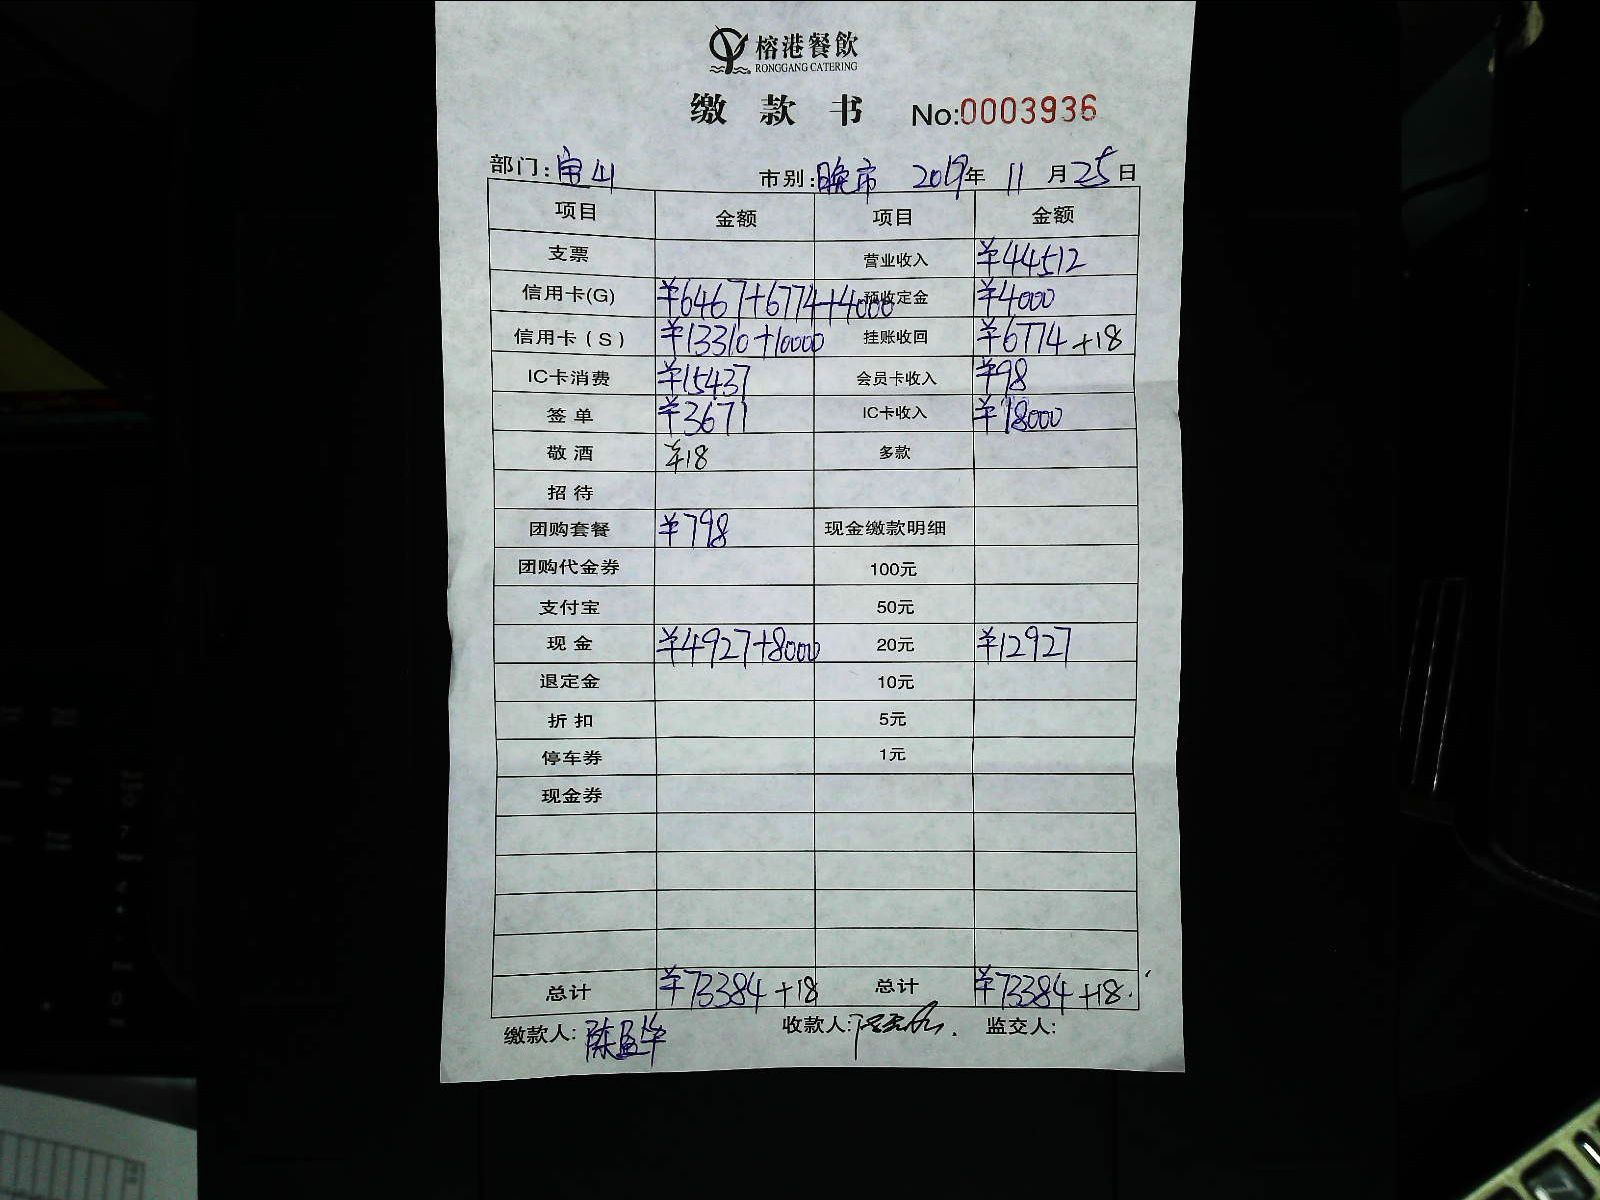 榕港餐飲
RONGGANG CATERING
缴款书 No:0003936
部门:宝山 市别:晚市 2019年 11月25日
项目 金额 项目 金额
支票 营业收入 ¥44512
信用卡(G) ¥6467+6774+4000 预收定金 ¥4000
信用卡(S) ¥13310+10000 挂账收回 ¥6774+18
IC卡消费 ¥15437 会员卡收入 ¥98
签单 ¥3671 IC卡收入 ¥18000
敬酒 ¥18 多款
招待
团购套餐 ¥798 现金缴款明细
团购代金券 100元
支付宝 50元
现金 ¥4927+8000 20元 ¥12927
退定金 10元
折扣 5元
停车券 1元
现金券
总计 ¥73384+18 总计 ¥73384+18
缴款人:陈孟华 收款人: 监交人: